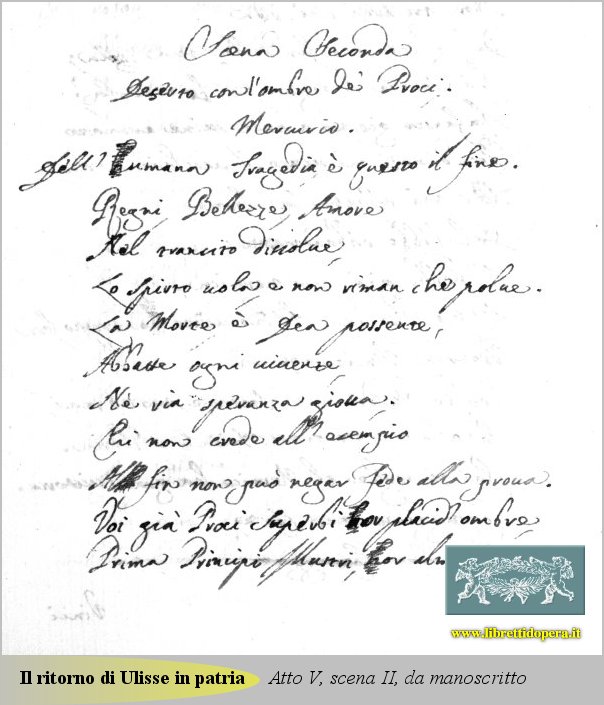 Scena Seconda
Deserto con l'ombre de' Proci.
Mercurio.
Dell' humana Tragedia è questo il fine.
Regni, Bellezze, Amore
Nel transito dissolue,
Lo spirto uola, e non riman che polue.
La Morte è Dea possente,
Abbatte ogni uiuente,
Nè via speranza gioua.
Chi non crede all' esempio
Al fin non può negar fede alla proua.
Voi già Proci superbi hor placid' ombre,
Prima Principi Illustri, hor
www.librettidopera.it
Il ritorno di Ulisse in patria Atto V, scena II, da manoscritto